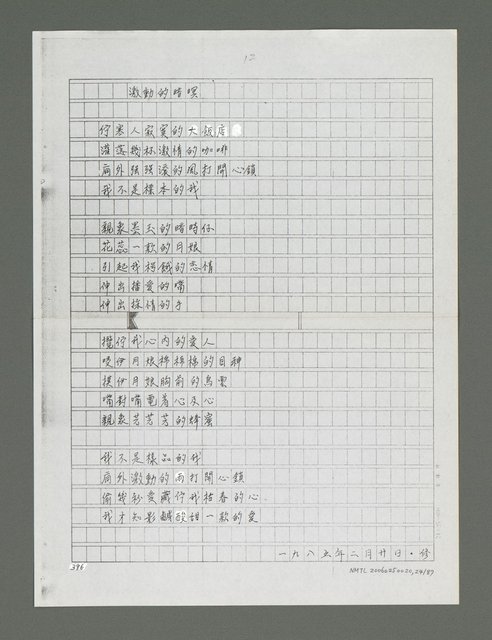 12
激動的暗暝
佇寒人寂寞的大飯店
灌落幾杯激情的咖啡
窗外強強滾的風打開心鎖
我不是標本的我
親象墨玉的暗暗仔
花蕊一款的月娘
引起我枵餓的戀情
伸出播愛的嘴
伸出採情的手
攬佇我心內的愛人
咬伊月娘柿柿的目神
摸伊月娘胸前的烏雲
嘴對嘴電著心及心
親象芳芳芳的蜂蜜
我不是樣品的我
窗外激動的雨打開心鎖
偷我秘愛藏佇我枯春的心
我才知影鹹酸甜一款的愛
一九八五年二月廿日·修
396
NMTL 20060250020,24/87